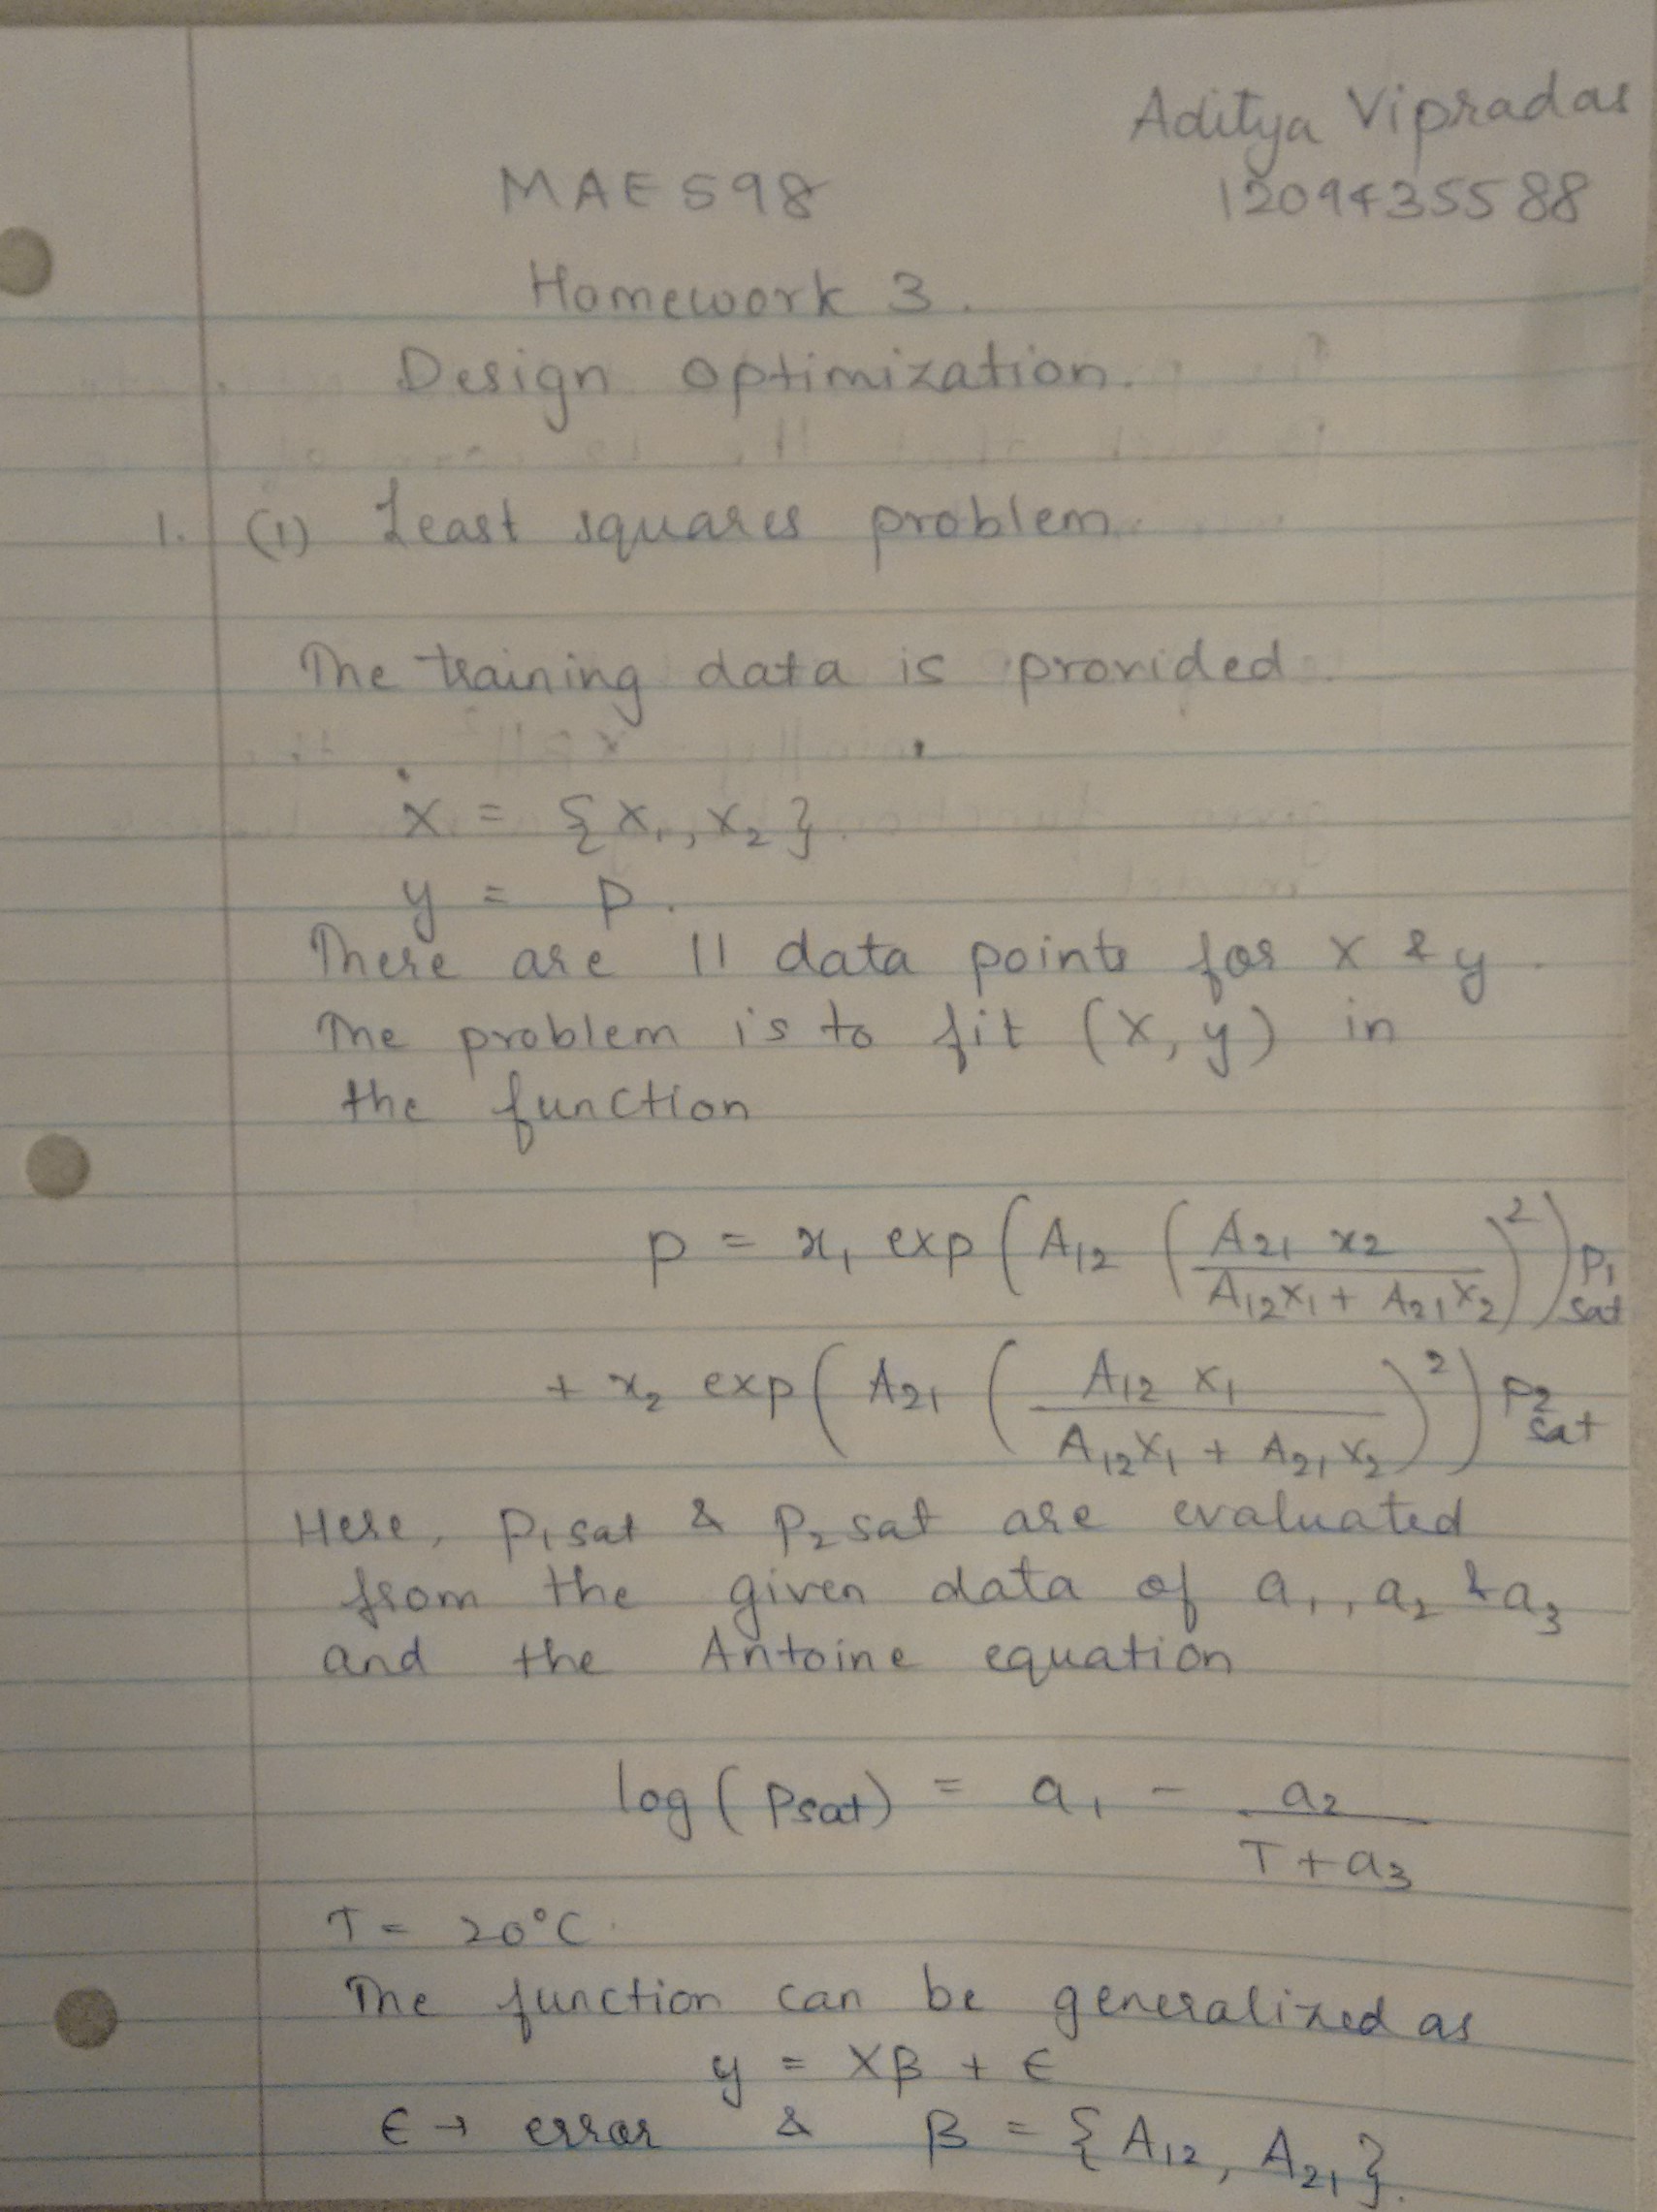 Aditya Vipradas
MAE 598
1209435588
Homework 3.
Design Optimization.
1. (1) Least squares problem
The training data is provided
x = {x₁, x₂}.
y = p.
There are 11 data points for x & y.
The problem is to fit (x, y) in
the function
p = x₁ exp(A₁₂ (A₂₁ x₂ / (A₁₂x₁ + A₂₁x₂))²) p₁ sat
+ x₂ exp(A₂₁ (A₁₂ x₁ / (A₁₂x₁ + A₂₁x₂))²) p₂ sat
Here, p₁sat & p₂sat are evaluated
from the given data of a₁, a₂ & a₃
and the Antoine equation
log(psat) = a₁ - a₂ / (T + a₃)
T = 20°C
The function can be generalized as
y = Xβ + ϵ
ϵ → error & β = {A₁₂, A₂₁}.